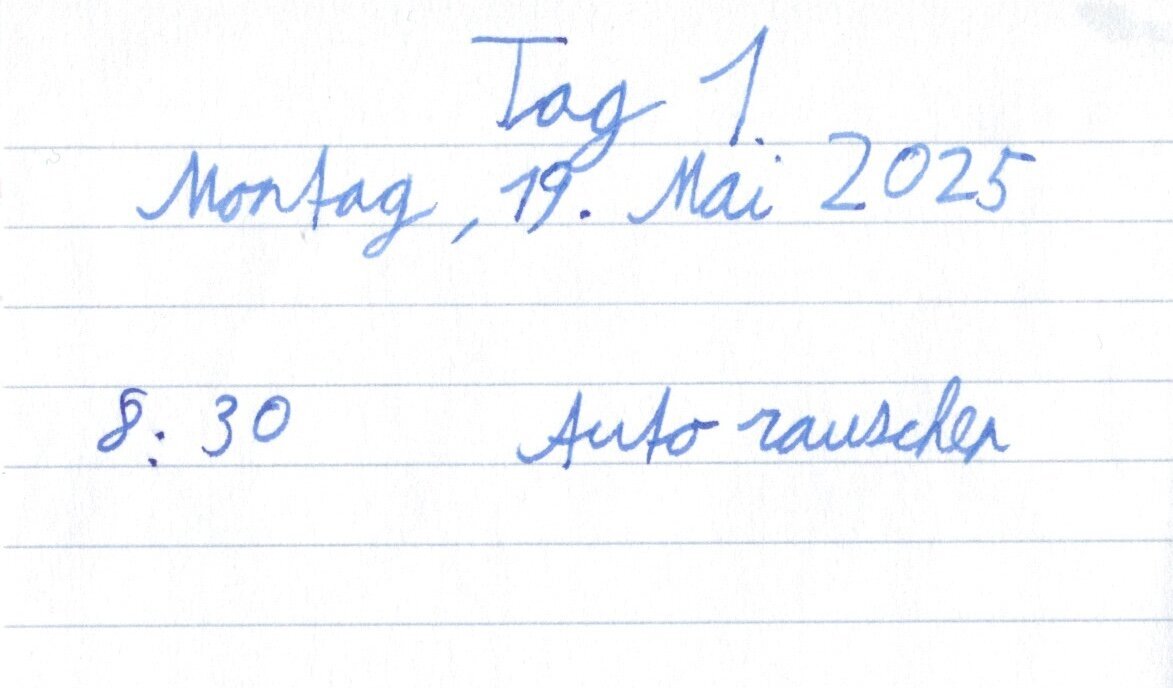 Tag 1.
Montag, 19. Mai 2025
8:30 Auto rauschen